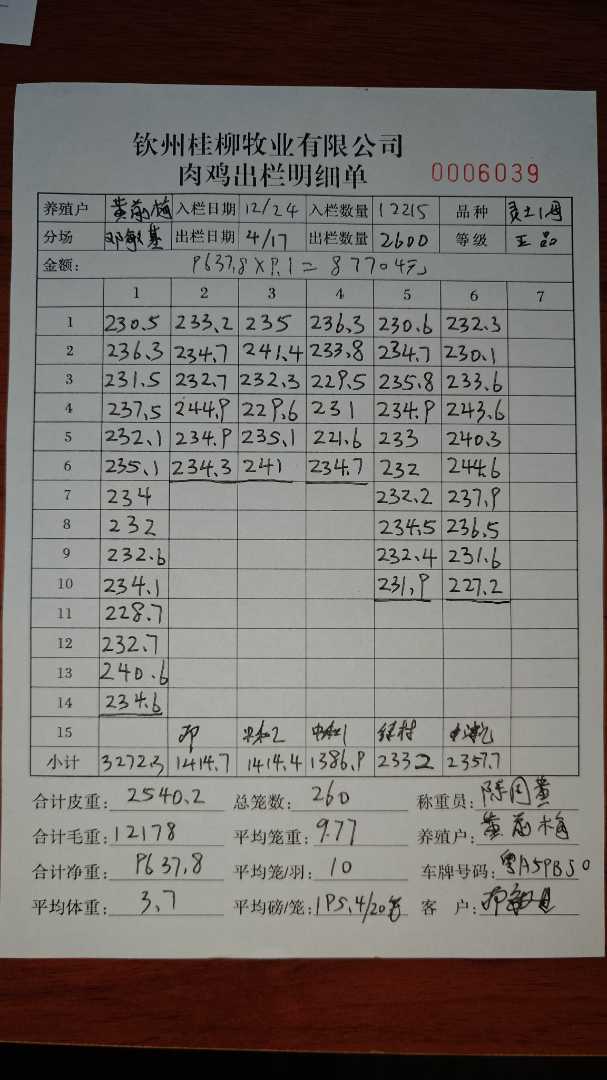 钦州桂柳牧业有限公司
肉鸡出栏明细单 0006039
养殖户 黄 梅 入栏日期 12/24 入栏数量 12215 品种
分场 邓敏基 出栏日期 4/17 出栏数量 2600 等级 正品
金额: 9637.8×9.1=87704元
1 2 3 4 5 6 7
1 230.5 233.2 235 236.3 230.6 232.3
2 236.3 234.7 241.4 233.8 234.7 230.1
3 231.5 232.7 232.3 229.5 235.8 233.6
4 237.5 244.9 229.6 231 234.9 243.6
5 232.1 234.9 235.1 221.6 233 240.3
6 235.1 234.3 241 234.7 232 244.6
7 234 232.2 237.9
8 232 234.5 236.5
9 232.6 232.4 231.6
10 234.1 231.9 227.2
11 228.7
12 232.7
13 240.6
14 234.6
15
小计 3272.3 1414.7 1414.4 1386.9 2332 2357.7
合计皮重: 2540.2 总笼数: 260 称重员: 陈 黄
合计毛重: 12178 平均笼重: 9.77 养殖户: 黄 梅
合计净重: 9637.8 平均笼/羽: 10 车牌号码: 粤A59B50
平均体重: 3.7 平均磅/笼: 195.4/20笼 客 户: